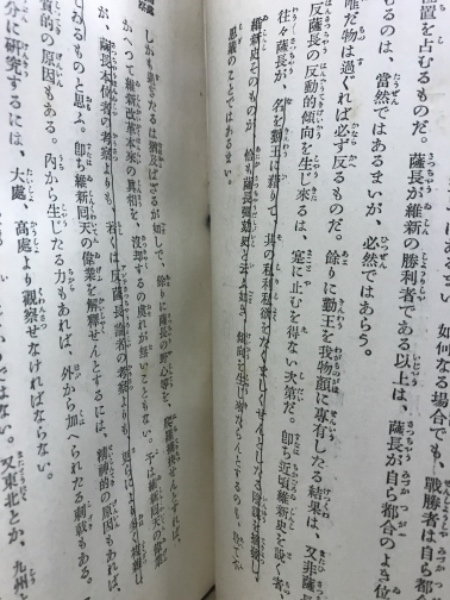 如何なる場合でも、戰勝者は自ら都
位置を占むるものだ。薩長が維新の勝利者である以上は、薩長が自ら都合のよき位
むるのは、當然ではあるまいが、必然ではあらう。
唯だ物は過ぐれば必ず反るものだ。餘りに勤王を我物顏に專有したる結果は、又非薩
反薩長の反動的傾向を生じ來るは、寔に止むを得ない次第だ。卽ち近頃維新史を說く者、
往々薩長が、名を勤王に藉りて、其の私利私欲を
維新史そのものが、恰も薩長彈劾史と云ふ
傾向を生じ來
思議のことではあるまい。
しかも過ぎたるは猶及ばざるが如しで、徐りに薩長の野心等を、
かへつて維新改革本來の眞相を、沒却するの虞れが無いこともない。予は維新囘天の偉業
が、薩長本位者の考察よりも、若くは反薩長論者の考察よりも、更らにより多く複雜し
てあるものと思ふ。卽ち維新囘天の偉業を解釋せんとするには、精神的の原因もある。
質的の原因もある。內から生じたる力もあれば、外から加へられたる刺戟もある。
分に硏究するには、大處、高處より觀察せなければならない。
ではない。又東北とか、九州と